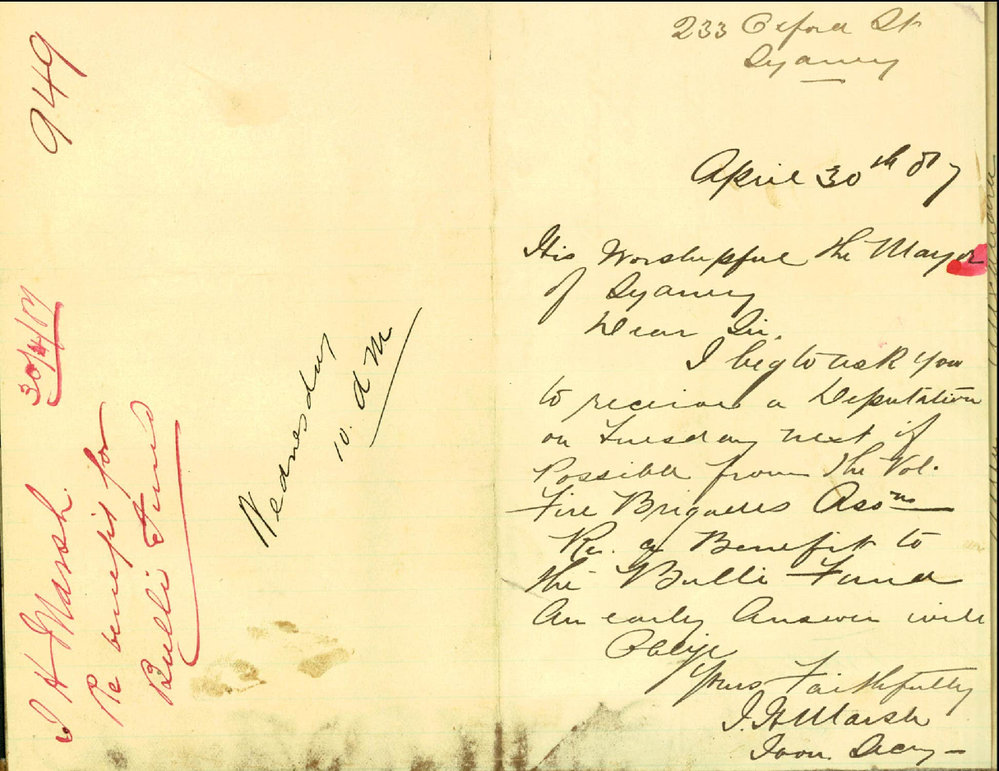 949
J H Marsh. 30/4/87
Re benefit for
Bulli Fund
Wednesday
10. a m
233 Oxford St
Sydney
April 30th 87
His Worshipful the Mayor
of Sydney
Dear Sir,
I beg to ask you
to receive a Deputation
on Tuesday next if
Possible from the Vol.
Fire Brigades Asons
Re. a Benefit to
the Bulli Fund
An early Answer will
Oblige
Yours Faithfully
J. H Marsh
Hon. Secy